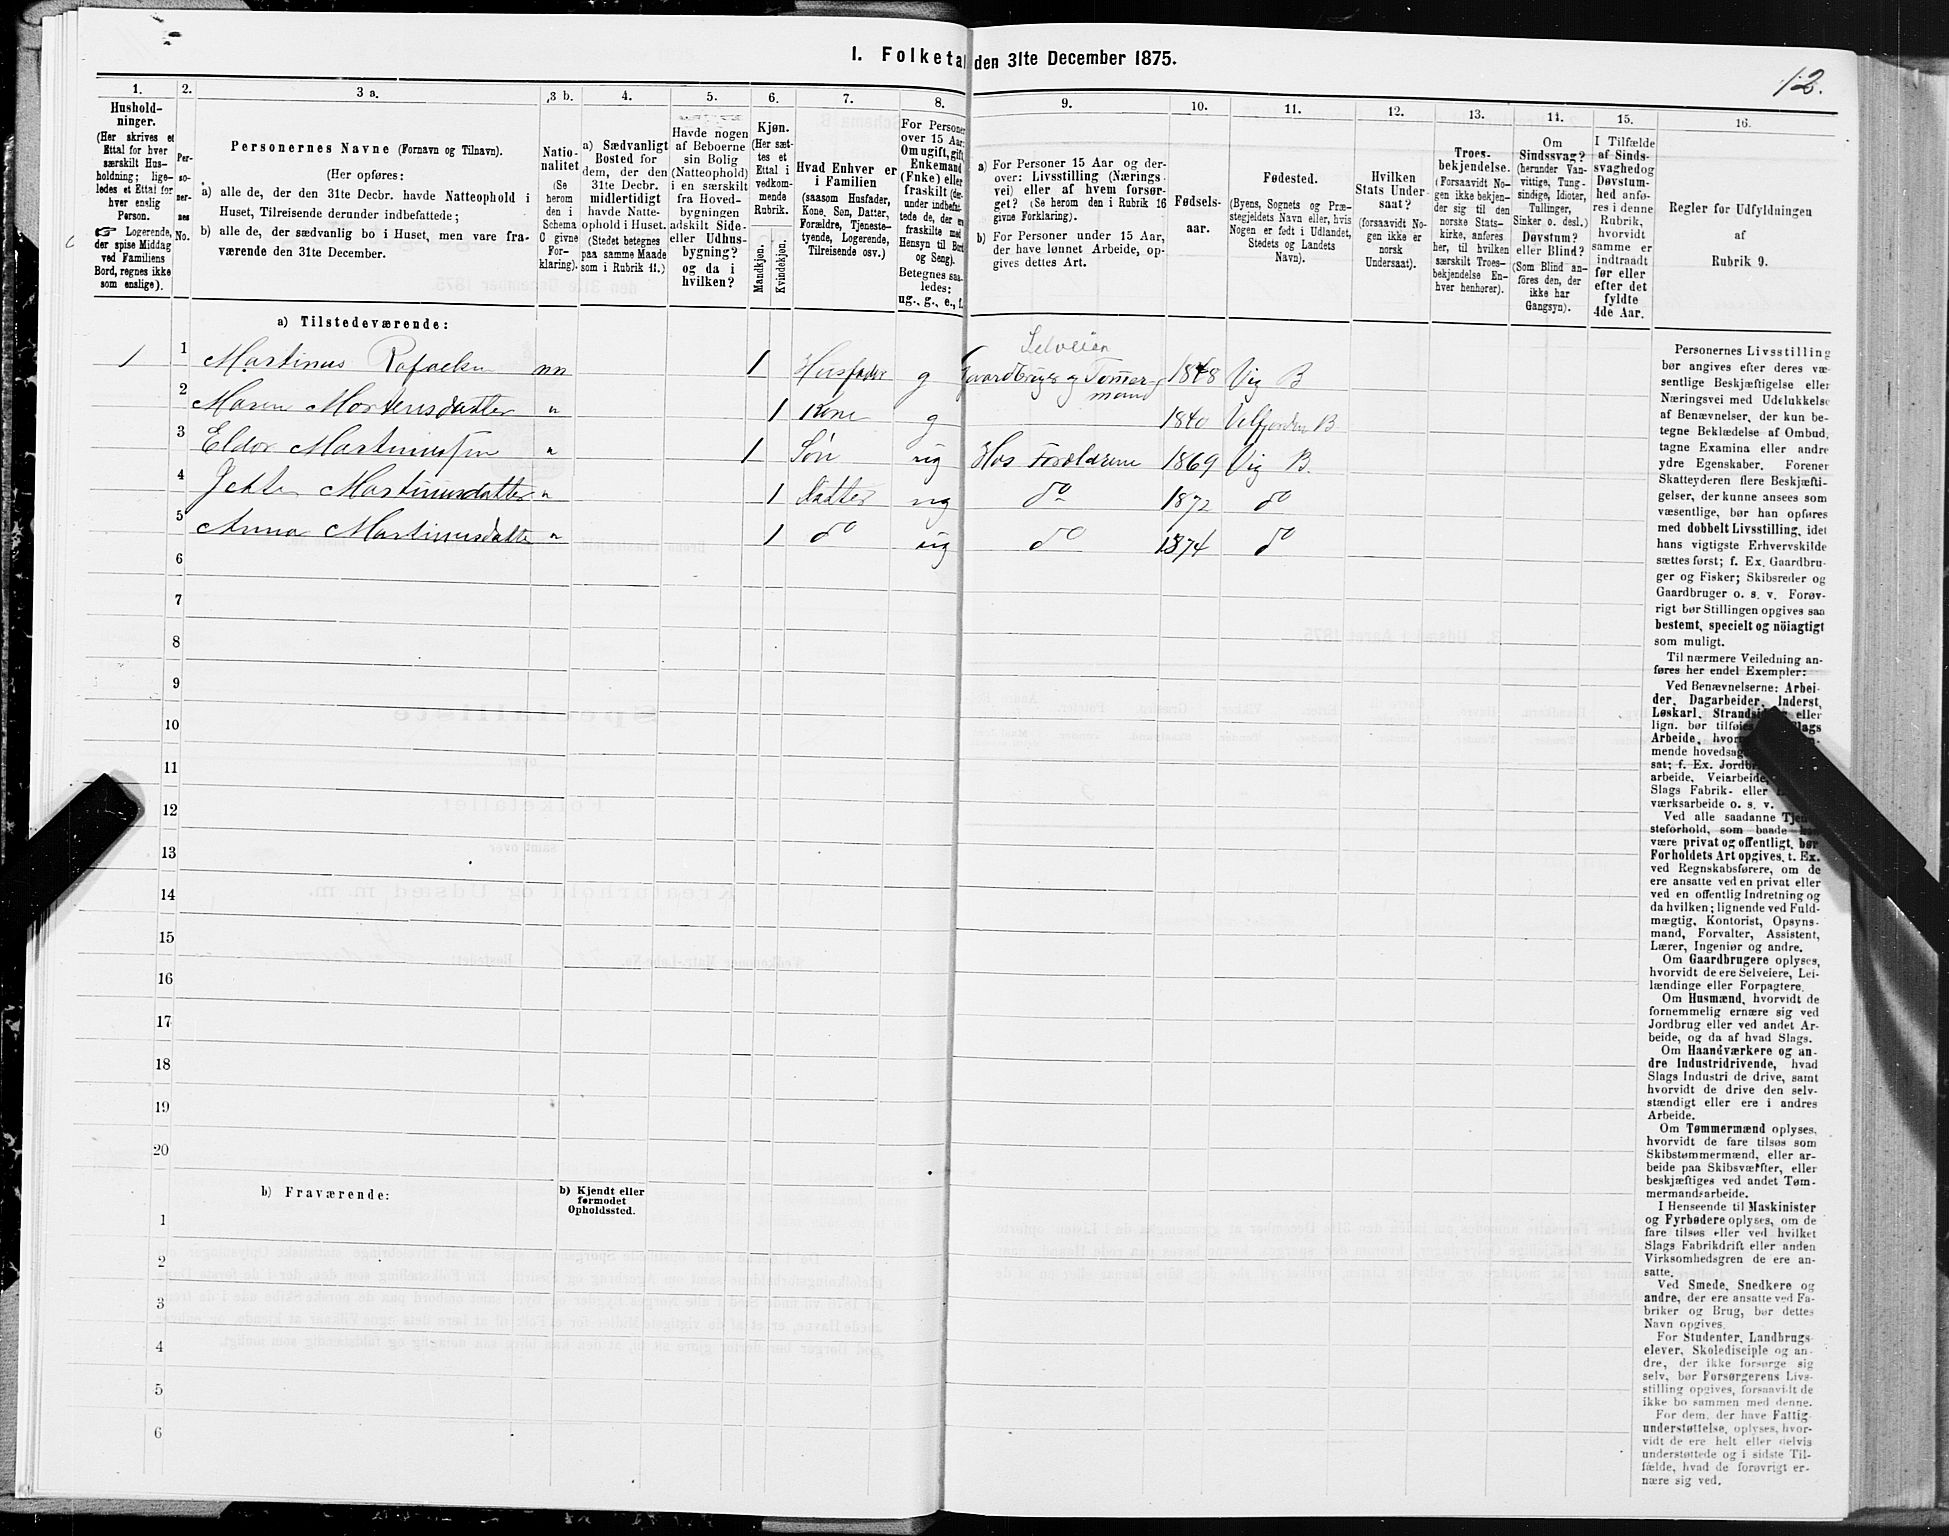 I. Folketal den 31te December 1875.
12.
1. 2. 3 a. 3 b. 4. 5. 6. 7. 8. 9. 10. 11. 12. 13. 14. 15. 16.
Hushold-
ninger.
(Her skrives et
Ettal for hver
særskilt Hus-
holdning; lige-
ledes et Ettal for
hver enslig
Person.
☞ Logerende,
der spise Middag
ved Familiens
Bord, regnes ikke
som enslige).
Per-
so-
ner-
nes
No.
Personernes Navne (Fornavn og Tilnavn).
(Her opføres:
a) alle de, der den 31te Decbr. havde Natteophold i
Huset, Tilreisende derunder indbefattede;
b) alle de, der sædvanlig bo i Huset, men vare fra-
værende den 31te December.
Natio-
nalitet
(Se
herom
den i
Schema
C givne
For-
klaring).
a) Sædvanligt
Bosted for
dem, der den
31te Decbr.
midlertidigt
havde Natte-
ophold i Huset.
(Stedet betegnes
paa samme Maade
som i Rubrik 11.)
Havde nogen
af Beboerne
sin Bolig
(Natteophold)
i en særskilt
fra Hoved-
bygningen
adskilt Side-
eller Udhus-
bygning?
og da i
hvilken?
Kjøn.
(Her sæt-
tes et
Ettal i
vedkom-
mende
Rubrik.
Mandkjøn.
Kvindekjøn.
Hvad Enhver er
i Familien
(saasom Husfader,
Kone, Søn, Datter,
Forældre, Tjeneste-
tyende, Logerende,
Tilreisende osv.)
For Personer
over 15 Aar:
Om ugift, gift,
Enkemand
(Enke) eller
fraskilt (der-
under indbefat-
tede de, der ere
fraskilte med
Hensyn til Bord
og Seng).
Betegnes saa-
ledes:
ug., g., e., f.
a) For Personer 15 Aar og der-
over: Livsstilling (Nærings-
vei) eller af hvem forsør-
get? (Se herom den i Rubrik 16
givne Forklaring).
b) For Personer under 15 Aar,
der have lønnet Arbeide, op-
gives dettes Art.
Fødsels-
aar.
Fødested.
(Byens, Sognets og Præ-
stegjeldets Navn eller, hvis
Nogen er født i Udlandet,
Stedets og Landets
Navn).
Hvilken
Stats Under-
saat?
(forsaavidt No-
gen ikke er
norsk
Undersaat).
Troes-
bekjendelse.
(Forsaavidt No-
gen ikke bekjen-
der sig til den
norske Stats-
kirke, anføres
her, til hvilken
særskilt Troes-
bekjendelse En-
hver henhører).
Om
Sindssvag?
(herunder Van-
vittige, Tung-
sindige, Idioter,
Tullinger,
Sinker o. desl.)
Døvstum?
eller Blind?
(Som Blind an-
føres den, der
ikke har
Gangsyn).
I Tilfælde
af Sinds-
svaghed og
Døvstum-
hed anfø-
res i denne
Rubrik,
hvorvidt
samme er
indtraadt
før eller
efter det
fyldte
4de Aar.
Regler for Udfyldningen
af
Rubrik 9.
a) Tilstedeværende:
1 1 Martinus Rafaelsen nn 1 Husfader g Selveier Gaardbruger og Tømmermand 1848 Vig B
2 Maren Mortensdatter " 1 Kone g 1840 Velfjorden B
3 Eldor Martinussen " 1 Søn ug Hos Forældrene 1869 Vig B.
4 Jette Martinusdatter " 1 Datter ug do 1872 do
5 Anna Martinusdatter " 1 do ug do 1874 do
6
7
8
9
10
11
12
13
14
15
16
17
18
19
20
b) Fraværende:
b) Kjendt eller
formodet
Opholdssted.
1
2
3
4
5
6
Personernes Livsstilling
bør angives efter deres væ-
sentlige Beskjæftigelse eller
Næringsvei med Udelukkelse
af Benævnelser, der kun be-
tegne Beklædelse af Ombud,
tagne Examina eller andre
ydre Egenskaber. Forener
Skatteyderen flere Beskjæfti-
gelser, der kunne ansees som
væsentlige, bør han opføres
med dobbelt Livsstilling, idet
hans vigtigste Erhvervskilde
sættes først; f. Ex. Gaardbru-
ger og Fisker; Skibsreder og
Gaardbruger o. s. v. Forøv-
rigt bør Stillingen opgives saa
bestemt, specielt og nöiagtigt
som muligt.
Til nærmere Veiledning an-
føres her endel Exempler:
Ved Benævnelserne: Arbei-
der, Dagarbeider, Inderst,
Løskarl, eller
lign. bør Slags
Arbeide,
mende
sat; f. Ex.
arbeide, Veiarbeide,
Slags Fabrik- eller
værksarbeide o. s. v.
Ved alle saadanne Tjene-
steforhold, som baade kan
være privat og offentligt, bør
Forholdets Art opgives, f. Ex.
ved Regnskabsførere, om de
ere ansatte ved en privat eller
ved en offentlig Indretning og
da hvilken; lignende ved Fuld-
mægtig, Kontorist, Opsyns-
mand, Forvalter, Assistent,
Lærer, Ingeniør og andre.
Om Gaardbrugere oplyses,
hvorvidt de ere Selveiere, Lei-
lændinge eller Forpagtere.
Om Husmænd, hvorvidt de
fornemmelig ernære sig ved
Jordbrug eller ved andet Ar-
beide, og da af hvad Slags.
Om Haandværkere og an-
dre Industridrivende, hvad
Slags Industri de drive, samt
hvorvidt de drive den selv-
stændigt eller ere i andres
Arbeide.
Om Tømmermænd oplyses,
hvorvidt de fare tilsøs som
Skibstømmermænd, eller ar-
beide paa Skibsværfter, eller
beskjæftiges ved andet Tøm-
mermandsarbeide.
I Henseende til Maskinister
og Fyrbødere oplyses, om de
fare tilsøs eller ved hvilket
Slags Fabrikdrift eller anden
Virksomhedsgren de ere an-
satte.
Ved Smede, Snedkere og
andre, der ere ansatte ved Fa-
briker og Brug, bør dettes
Navn opgives.
For Studenter, Landbrugs-
elever, Skoledisciple og an-
dre, der ikke forsørge sig
selv, bør Forsørgerens Livs-
stilling opgives, forsaavidt de
ikke bo sammen med denne.
For dem, der have Fattig-
understøttelse, oplyses, hvor-
vidt de ere helt eller delvis
understøttede og i sidste Til-
fælde, hvad de forøvrigt er-
nære sig ved.